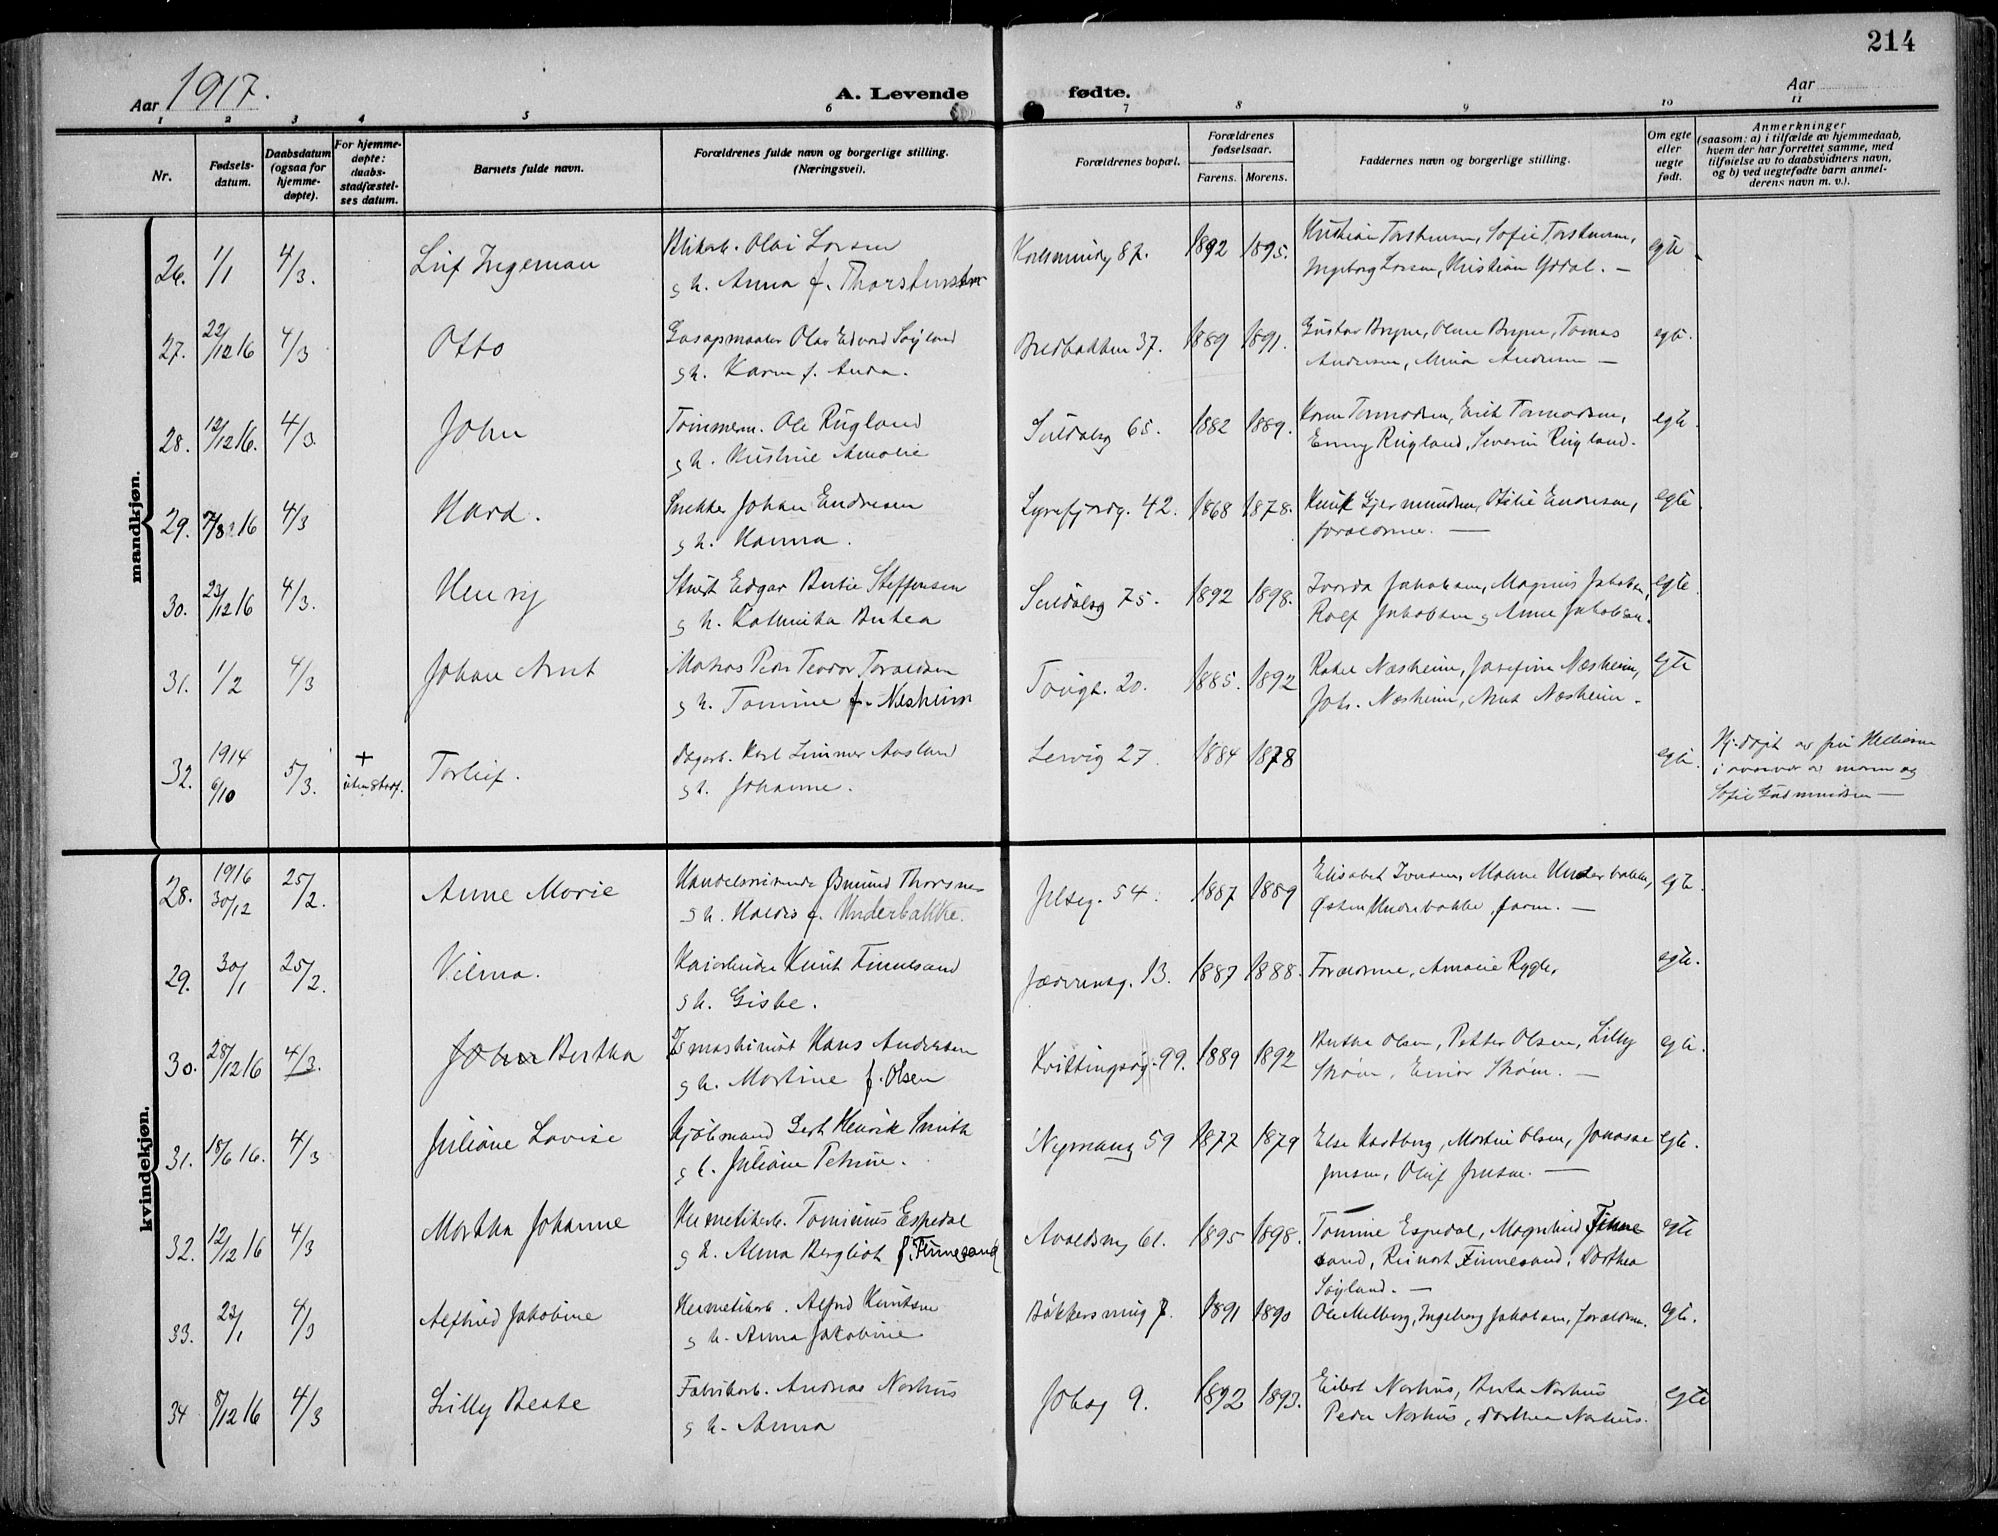 214
Aar 1917.
A. Levende fødte.
Aar
1 2 3 4 5 6 7 8 9 10 11
Nr.
Fødsels-
datum.
Daabsdatum
(ogsaa for
hjemme-
døpte).
For hjemme-
døpte:
daabs-
stadfæstel-
ses datum.
Barnets fulde navn.
Forældrenes fulde navn og borgerlige stilling.
(Næringsvei).
Forældrenes bopæl.
Forældrenes
fødselsaar.
Farens. Morens.
Faddernes navn og borgerlige stilling.
Om egte
eller
uegte
født.
Anmerkninger
(saasom: a) i tilfælde av hjemmedaab,
hvem der har forrettet samme, med
tilføielse av to daabsvidners navn,
og b) ved uegtefødte barn anmel-
derens navn m. v.).
mandkjøn.
26. 1/1 4/3. Leif Ingeman
Olai Larsen
g h. Anna f. Thorstensen
87. 1892 1895.
Kristian Torstensen, Sofie Torstensen,
Ingeborg Larsen, Kristian Yddal. —
egte
27. 22/12 16 4/3 Otto
Olav Edvard Søyland
g h. Karen f. Anda.
Bredbakken 37. 1889 1891.
Gustav Bryne, Oline Bryne, Tomas
Andersen, Mina Andersen —
egte.
28. 12/12 16. 4/3 John
Tømmerm. Ole Rugland
g h. Kristine Amalie
Suldalsg 65. 1882 1889.
Erik Tormodsen,
Emmy Rugland, Severin Rugland.
egte.
29. 7/8 16 4/3 Hard.
Snekker Johan Endresen
g h. Hanna.
Lysefjordg. 42. 1868 1878.
Knut Gjermundsen, Otilie Endresen,
forældrene. —
egte
30. 23/12 16 4/3. Henry
Stuert Edgar Bertie Steffensen
g h. Kalmika Bertea
Suldalsg 75. 1892 1898.
Jakobsen, Magnus Jakobsen,
Rolf Jakobsen g Anne Jakobsen.
egte.
31. 1/2 4/3 Johan Arnt
Matros Peder Teodor Toraldsen
g h. Tomine f. Næsheim
Tougt. 20. 1885. 1892
Rakel Næsheim, Josefine Næsheim,
Johs. Næsheim, Arnt Næsheim.
egte
32. 1914 6/10 5/3. + Torleif.
Dagarb. Karl Aasland
g h. Johanne.
Lervig 27. 1884 1878
egte.
Hj.døpt av fru
i overvær av moren og
Sofie Gudmundsen —
kvindekjøn.
28. 1916 30/12 25/2. Anne Marie
Handelsreisende Åsmund Thorsnes
g h. Haldis f. Underbakke.
Jelseg. 54. 1887 1889
Elisabet Iversen, Malene Underbakke,
Østen Underbakke, farm. —
egte.
29. 30/1 25/2. Vilma.
Kaiarbeider Knut Finnesand
g h. Giske.
13. 1887 1888.
Forældrene, Amalie Rygh.
egte.
30. 28/12 16 4/3. John Bertha
maskinist Hans Andersen
g h. Martine f. Olsen
Kvittingsøg. 99. 1889 1892
Bertha Olsen, Petter Olsen, Lilly
Strøm, Einar Strøm. —
egte.
31. 18/6 16. 4/3 Juliane Lovise
Kjøbmand Gert Henrik Smith
g h. Juliane Petrine.
Nymansg 59 1877 1879
Else Hartberg, Martin Olsen,
Jensen, Oluf Jensen. —
egte.
32. 12/12 16 4/3 Martha Johanne
Hermetikarb. Tominius Espedal
g h. Alma Bergliot f. Finnesand
Avaldsneg 61. 1895 1898.
Tomine Espedal, Magnhild Finne
sand, Reinert Finnesand, Dorthea
Søyland. —
egte
33. 23/1 4/3 Alfhild Jakobine
Hermetikarb. Alfred Knutsen
g h. Anna Jakobine
Bökkersmug 7. 1891 1890
Ole Melberg, Ingeborg Jakobsen, forældrene.
egte.
34 8/12 16 4/3 Lilly Beate
Fabrikarb. Andreas Norhus
g h. Anna
Jobsg 9. 1892 1893.
Eilert Norhus, Berta Norhus
Peder Norhus, Dorthea Norhus.
egte